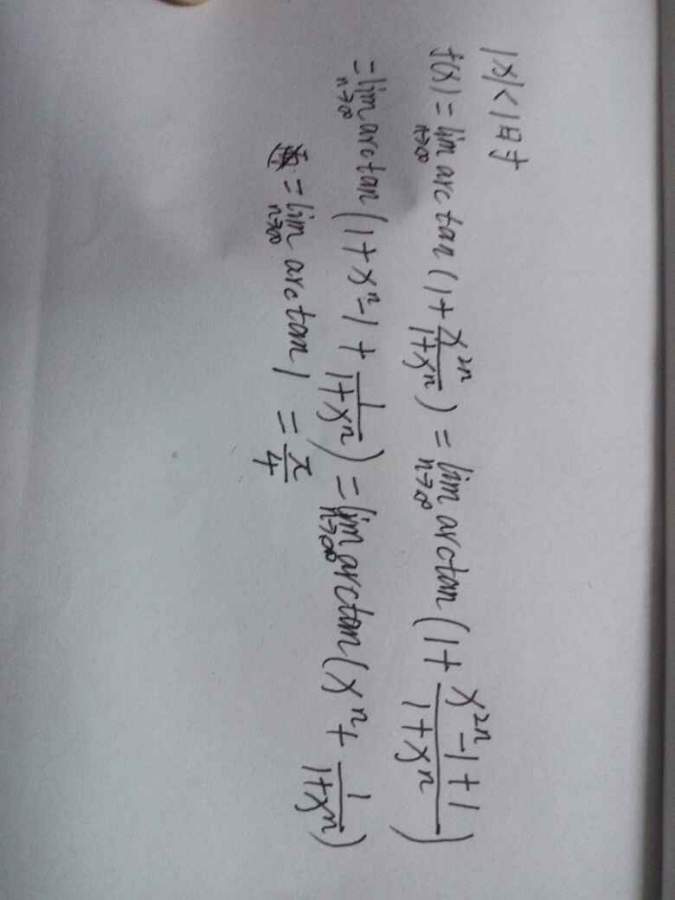 |x|<1时
f(x) = lim n→∞ arctan (1 + x^2n / 1+x^n) = lim n→∞ arctan (1 + x^2n -1+1 / 1+x^n)
= lim n→∞ arctan (1 + x^n -1 + 1 / 1+x^n) = lim n→∞ arctan (x^n + 1 / 1+x^n)
= lim n→∞ arctan 1 = π/4